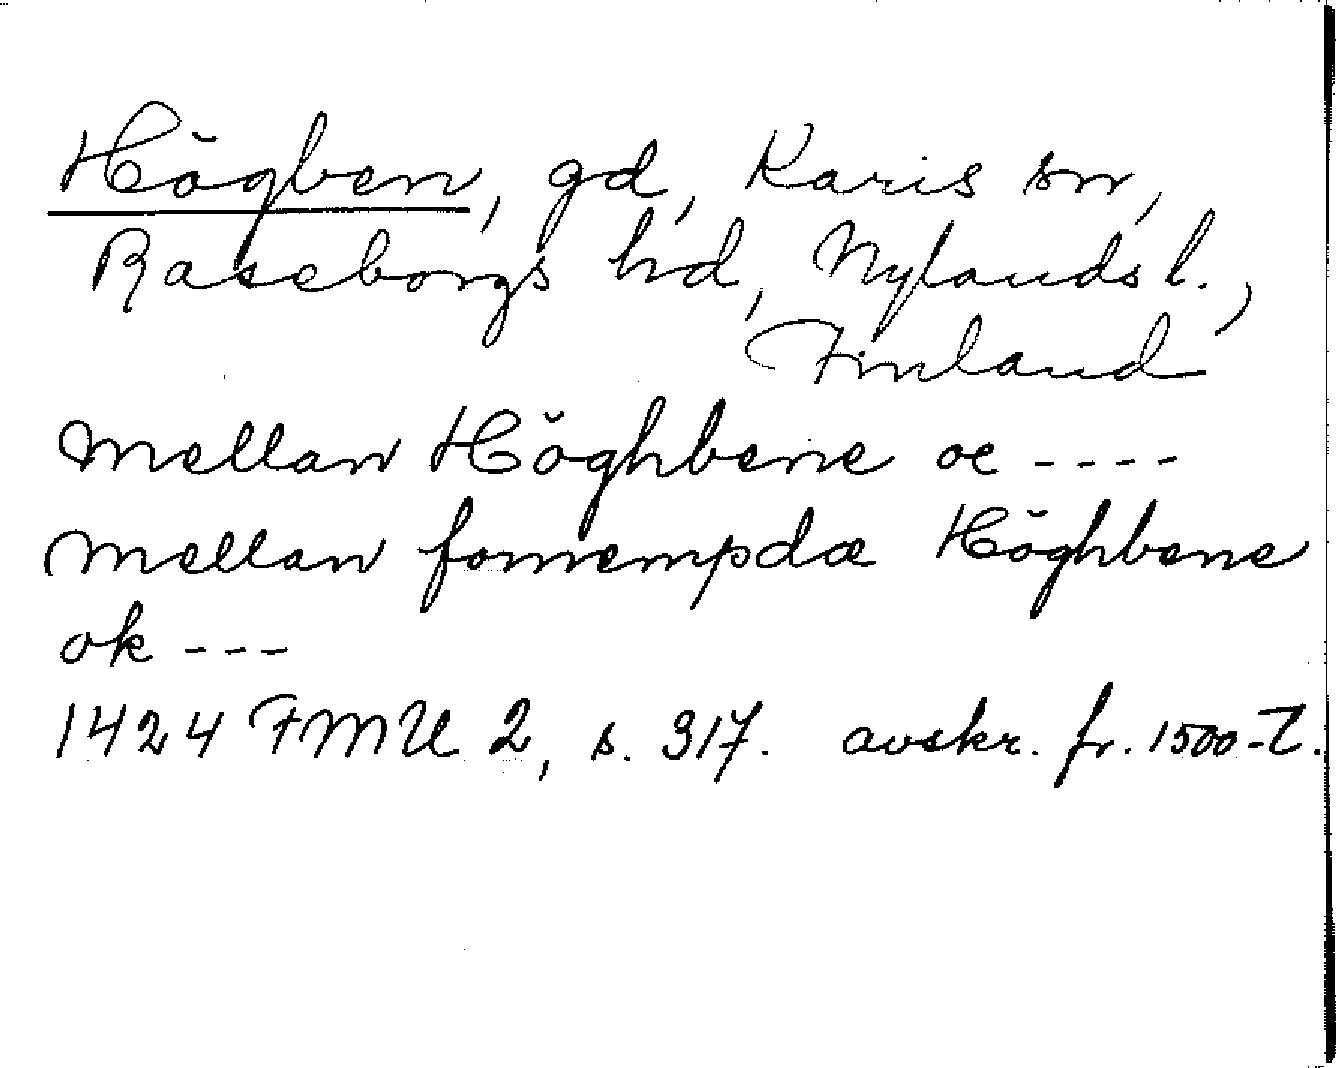 Högben, gd, Karis sn,
Raseborgs hd, Nylands l.,
Finland
Mellan Höghbene oc ----
Mellan fornempdæ Höghbene
ok ---
1424 FMU 2, s. 317. avskr. fr. 1500-t.